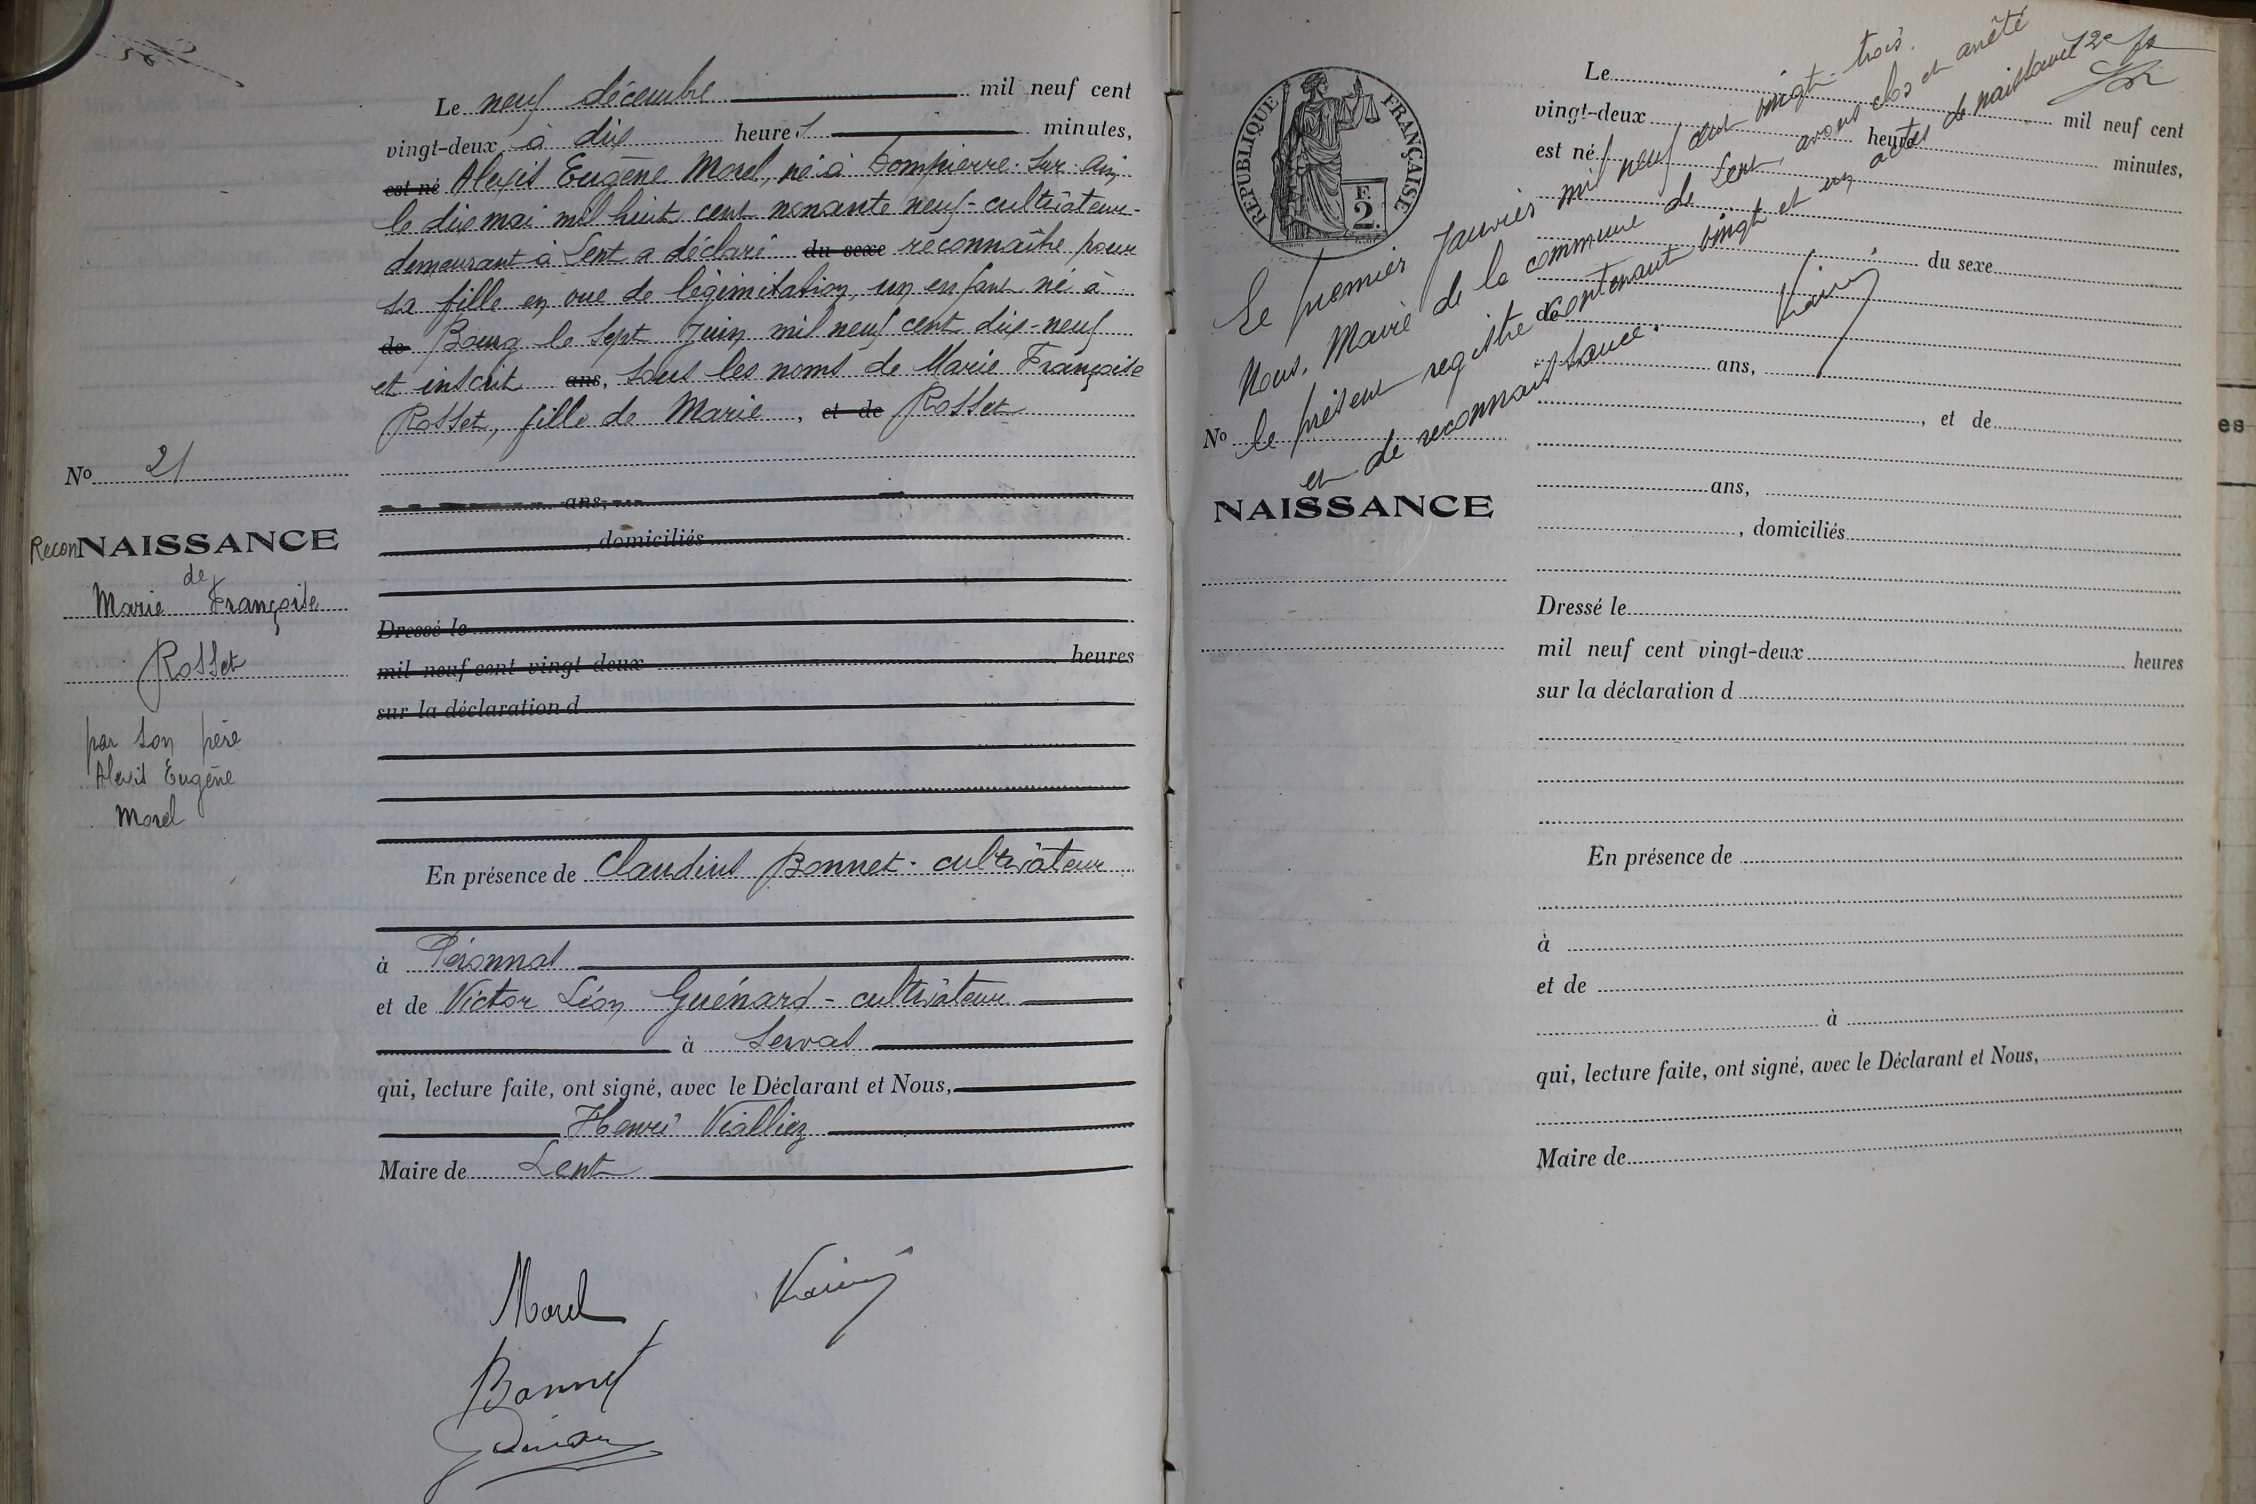 Le neuf décembre mil neuf cent
vingt-deux à dix heures minutes,
est né Alexis Eugène Morel, né à Dompierre-sur-Ain
le dix mai mil huit cent nonante neuf - cultivateur -
demeurant à Lent a déclaré du sexe reconnaître pour
sa fille en vue de légimitation, un enfant né à
de Bourg le sept Juin mil neuf cent dix-neuf
et inscrit ans, sous les noms de Marie Françoise
Rosset, fille de Marie, et de Rosset
No 21
ans,
ReconNAISSANCE
, domiciliés
de
Marie Françoise
Dressé le
Rosset
mil neuf cent vingt-deux heures
sur la déclaration d
par son père
Alexis Eugène
Morel
En présence de Claudius Bonnet - cultivateur
à Péronnas
et de Victor Léon Guénard - cultivateur
à Servas
qui, lecture faite, ont signé, avec le Déclarant et Nous,
Henri Vialliez
Maire de Lent
Morel
Bonnet
RÉPUBLIQUE FRANÇAISE
E.
2.
12e
Le mil neuf cent
vingt-deux heures minutes,
est né
du sexe
de
ans,
, et de
ans,
, domiciliés
Le premier Janvier mil neuf cent vingt-trois.
Nous, Maire de la commune de Lent, avons clos et arrêté
le présent registre contenant vingt et un actes de naissance
et de reconnaissance.
No
NAISSANCE
Dressé le
mil neuf cent vingt-deux heures
sur la déclaration d
En présence de
à
et de
à
qui, lecture faite, ont signé, avec le Déclarant et Nous,
Maire de
es